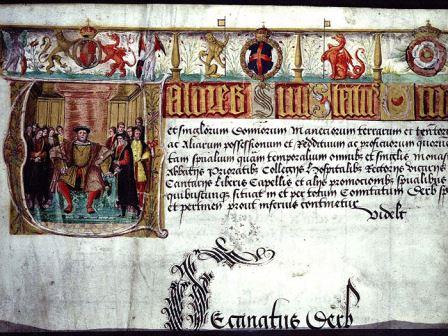 Valores Siue
et singulorum Honorum Maneriorum terrarum et
ac Aliarum possessionum et Reddituum ac proficiorum
tam spualium quam temporalium omnibus et singulis Monas
Abbathiis Prioratibus Collegiis Hospitalibus Rectoriis Vicariis
Cantariis Liberis Capellis et aliis promocionibus spualibus
quibuscunque situat in et per totum Comitatum Derb
et pertinen prout inferius continetur
Videlt
Decanatus Derb